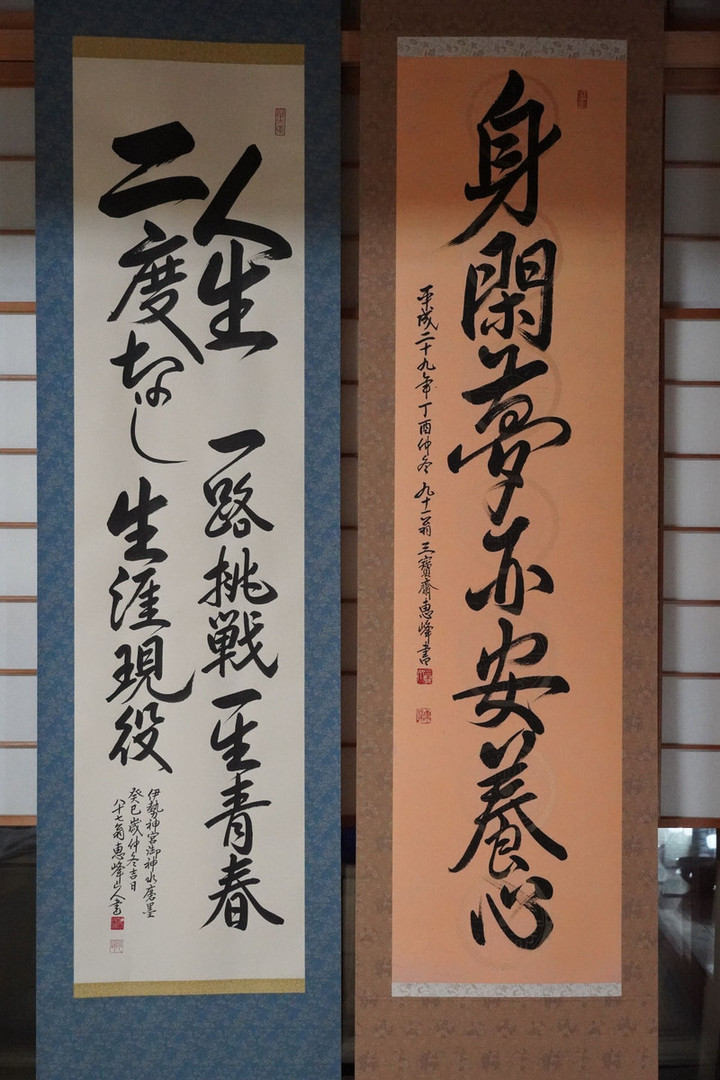 身閑夢亦安養心
平成二十九年丁酉仲冬 九十一翁 三寶齋恵峰書
人生 一路挑戦 一生青春
二度なし 生涯現役
伊勢神宮御神水磨墨
癸巳歳仲冬吉日
八十七翁恵峰山人書